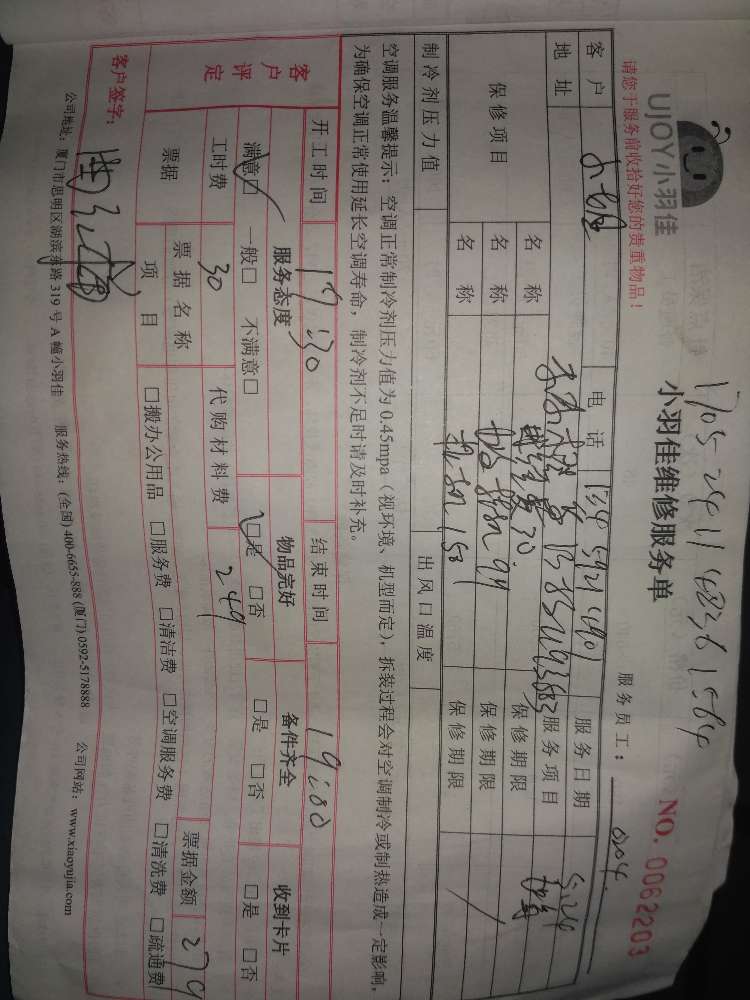 UJOY小羽佳
1705241148361564
小羽佳维修服务单
NO. 0062203
请您于服务前收拾好您的贵重物品！
服务员工：
客户
电话
服务日期
5.24
地址
服务项目
保修项目
名称
30
保修期限
名称
99
保修期限
名称
150
保修期限
制冷剂压力值
出风口温度
空调服务温馨提示：空调正常制冷剂压力值为0.45mpa（视环境、机型而定），拆装过程会对空调制冷或制热造成一定影响，
为确保空调正常使用延长空调寿命，制冷剂不足时请及时补充。
开工时间
结束时间
客户评定
服务态度
物品完好
备件齐全
收到卡片
满意□ 一般□ 不满意□
□是 □否
□是 □否
□是 □否
工时费
30
代购材料费
249
票据
票据名称
票据金额
279
项目
□搬办公用品 □服务费 □清洁费 □空调服务费 □清洗费 □疏通费
客户签字：
公司地址：厦门市思明区湖滨东路 319 号 A 幢小羽佳 服务热线：(全国) 400-6655-888 (厦门) 0592-5178888 公司网站：www.xiaoyujia.com